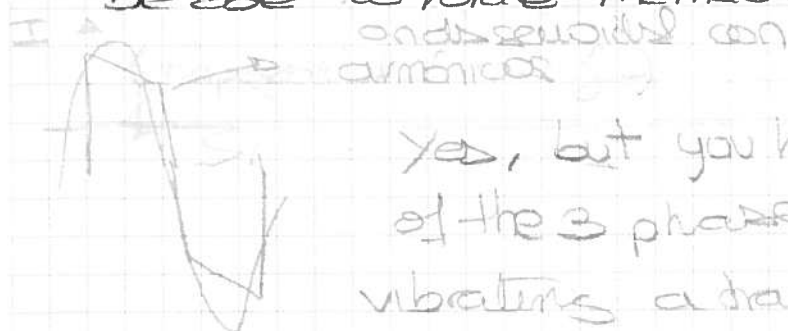 I
onda senoidal con
armónicos
Yes, but you h
of the 3 phase
vibrating a tra